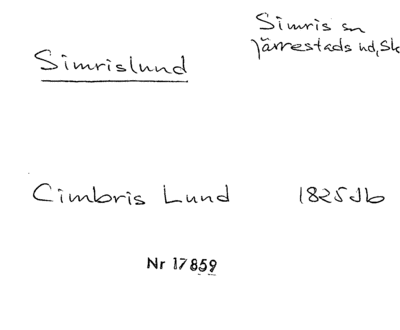 Simris sn
Järrestads hd, Sk
Simrislund
Cimbris Lund 1825 Jb
Nr 17859